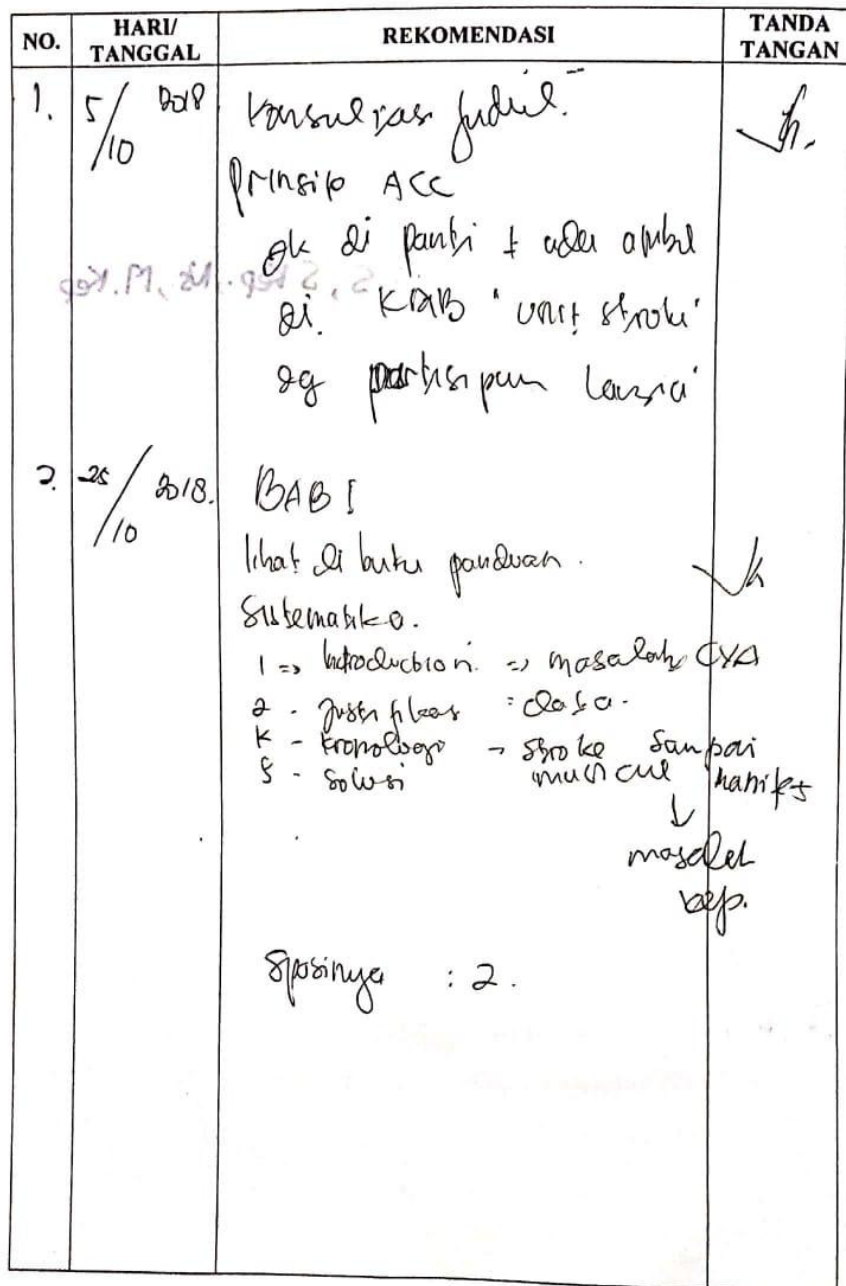 NO. HARI/ TANGGAL REKOMENDASI TANDA TANGAN
1. 5/10 2018 Konsultasi judul.
prinsip ACC
di panti ada ambil
di "unit stroke"
dg partisipan lansia
2. 25/10 2018. BAB I
lihat di buku panduan.
Sistematika.
1 => Introduction. => masalah CVA
2 - Justifikasi : data.
K - kronologi - stroke sampai
S - Solusi muncul
↓
masalah
kep.
Spasinya : 2.